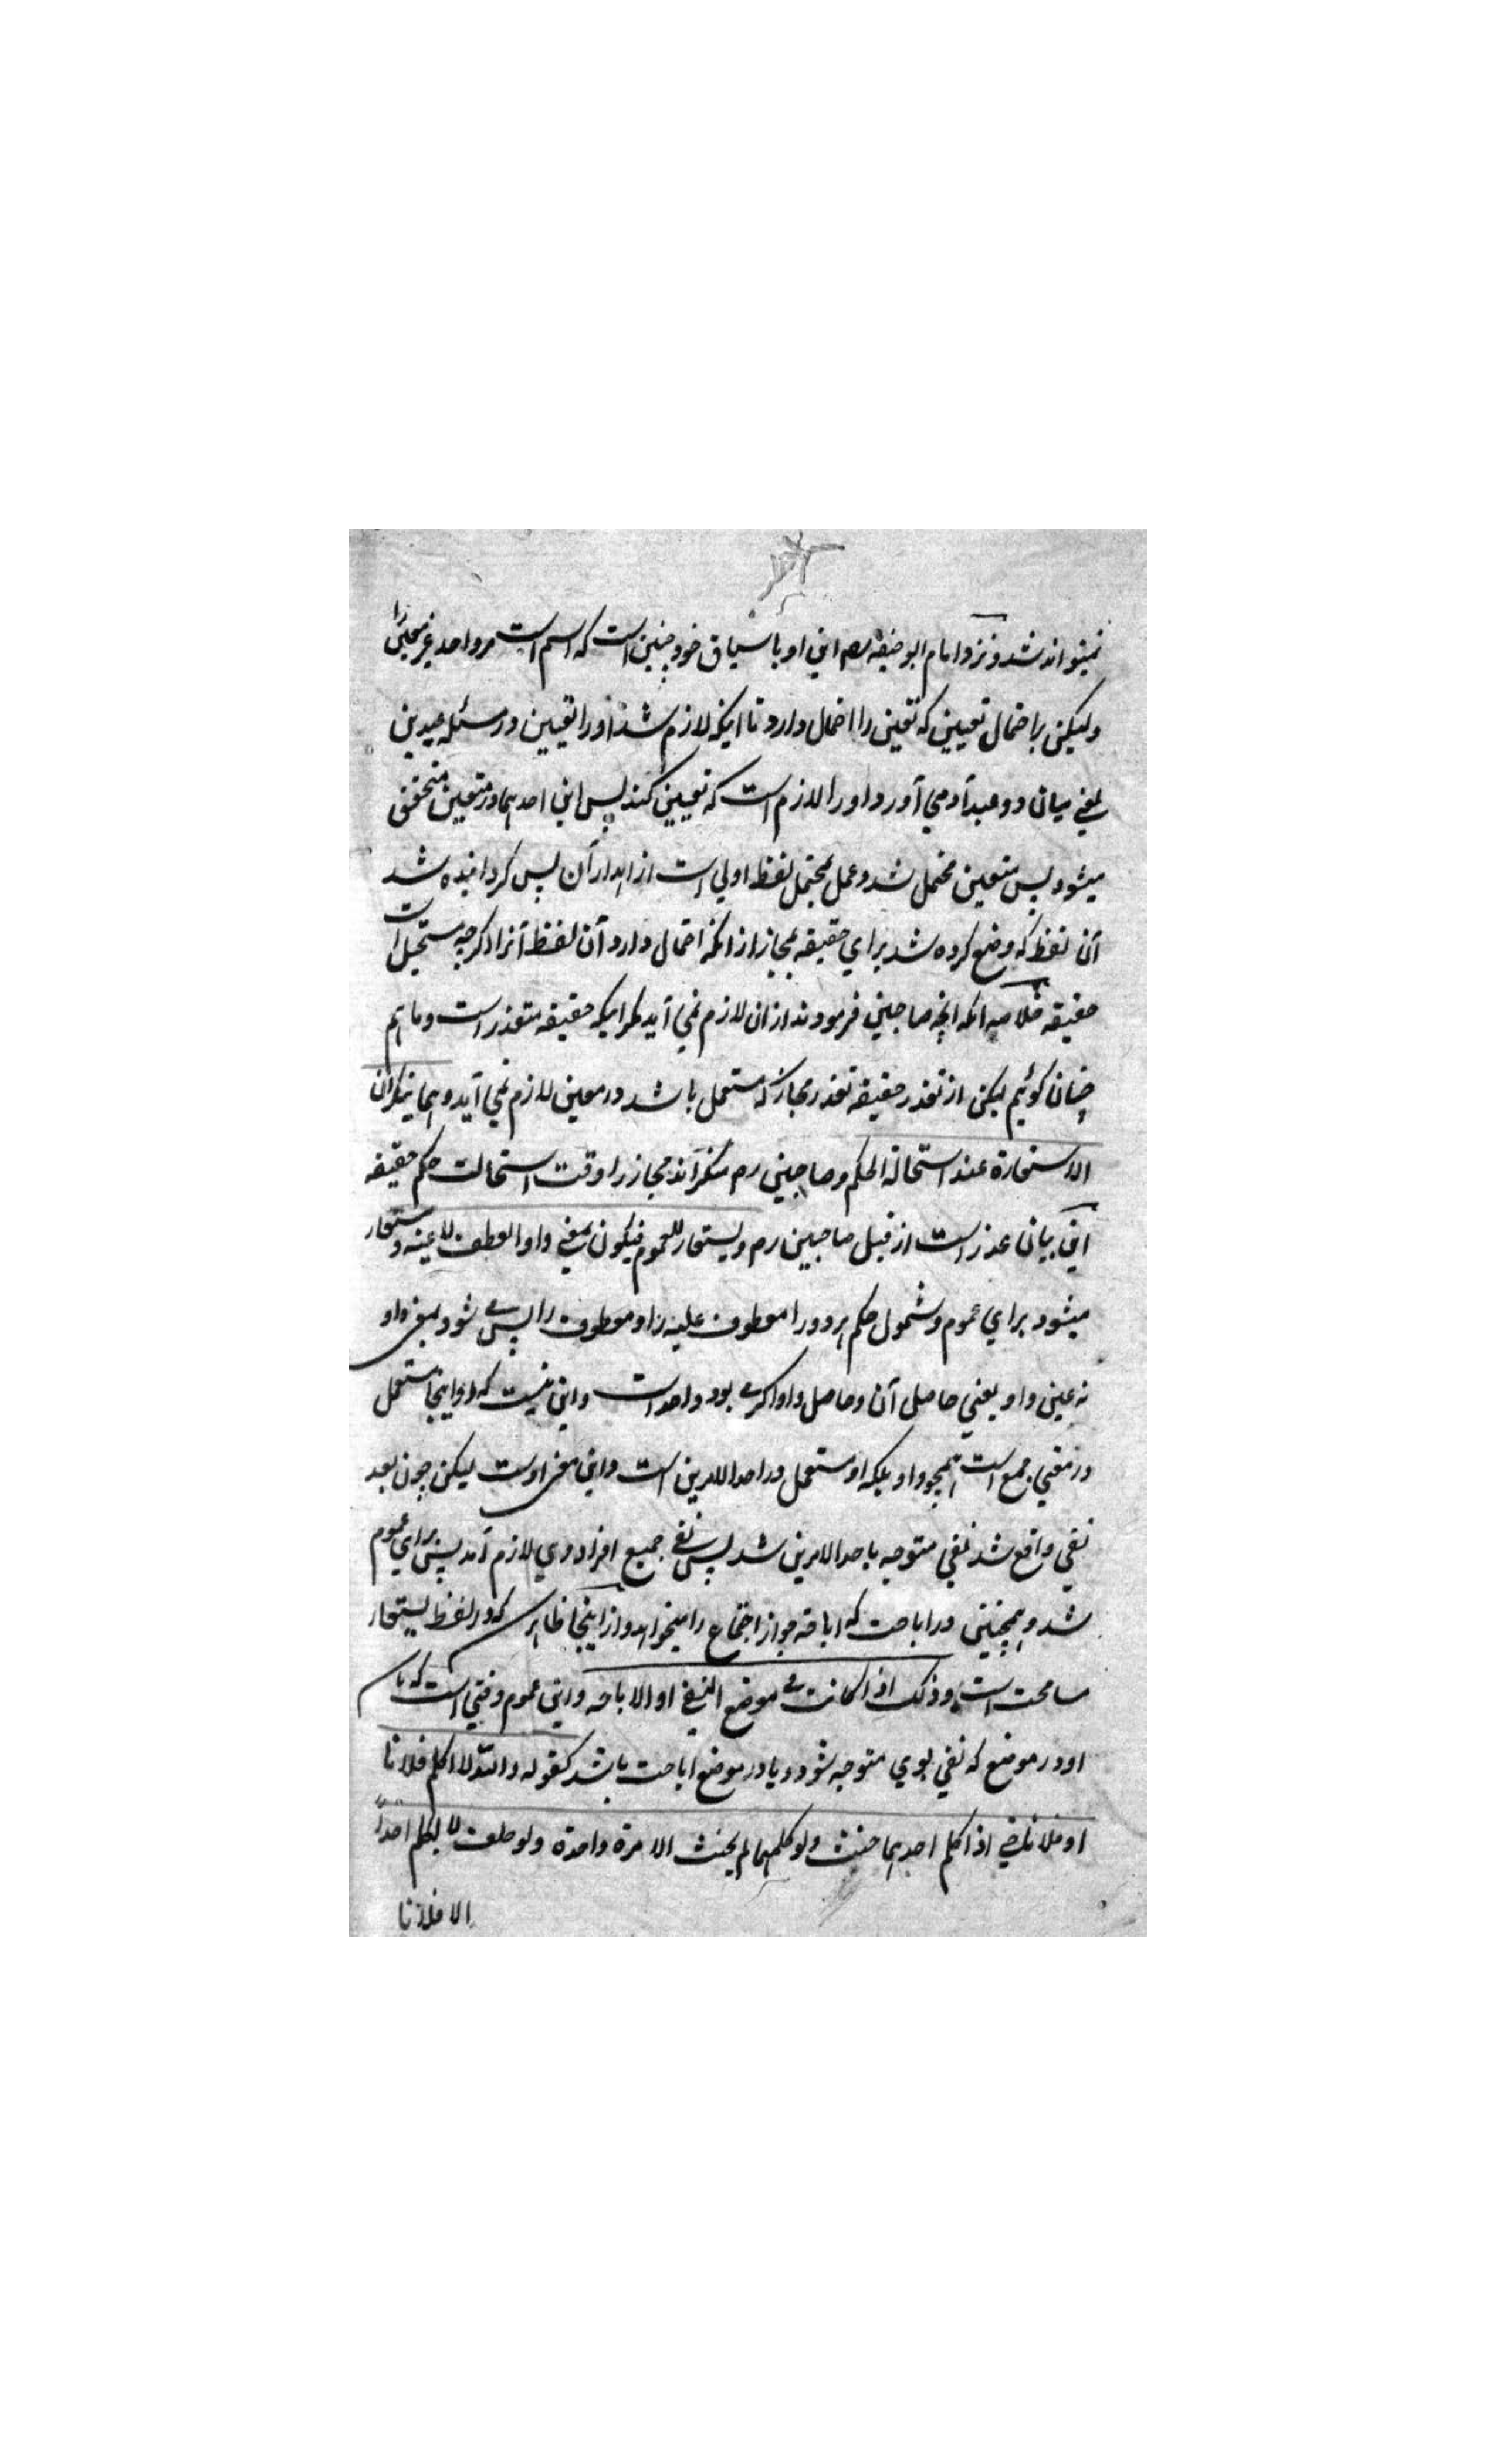 نمیتواند شد و نزد امام ابو حنیفه رح این او با سیاق خود چنین است که اسم است مر واحد غیر معین را
ولیکن بر احتمال تعیین که تعین را احتمال دارد تا اینکه لازم شد او را تعیین در مسئله عبدین
یعنی میان دو عبد آدمی آورد او را لازم است که تعیین کند پس این احدهما در متعین متحقق
میشود پس متعین محتمل شد و عمل بمحتمل لفظ اولی است از اهدار آن پس گردانیده شد
آن لفظ که وضع کرده شد برای حقیقه مجاز از انکه احتمال دارد آن لفظ آنرا اگرچه مستحیل است
حقیقه خلاصه انکه انچه صاحبین فرمودند ازان لازم نمی آید مگر اینکه حقیقه متعذر است و ما هم
چنان گوئیم لیکن از تعذر حقیقه تعذر مجاز که مستعمل باشد در معین لازم نمی آید و هما ینکران
الاستعارة عند استحالة الحکم و صاحبین رح منکر اند مجاز را وقت استحالت حکم حقیقه
این بیان عذر است از قبل صاحبین رح و یستعار للعموم فیکون بمعنی واو العطف لا عینه و مستعار
میشود برای عموم و شمول حکم هر دو را معطوف علیه را و معطوف را پس می شود بمعنی واو
نه عین واو یعنی حاصل آن و حاصل واو اگر می بود واحد است و این نیست که او اینجا مستعمل
در معنی جمع است همچو واو بلکه او مستعمل در احد الامرین است و این معنی اوست لیکن چون بعد
نفی واقع شد نفی متوجه باحد الامرین شد پس نفی جمیع افراد وی لازم آمد پس برای عموم
شد و همچنین در اباحت که اباحه جواز اجتماع را میخواهد و از اینجا ظاهر که در لفظ یستعار
مسامحت است و ذلک اذا کانت فی موضع النفی او الاباحه و این عموم وقتی است که باشد
او در موضع که نفی بوی متوجه شود و یا در موضع اباحت باشد کقوله والله لا اکلم فلانا
او فلانا حتی اذا کلم احدهما حنث ولو کلمهما لم یحنث الا مرة واحدة ولو حلف لا یکلم احداً
الا فلانا